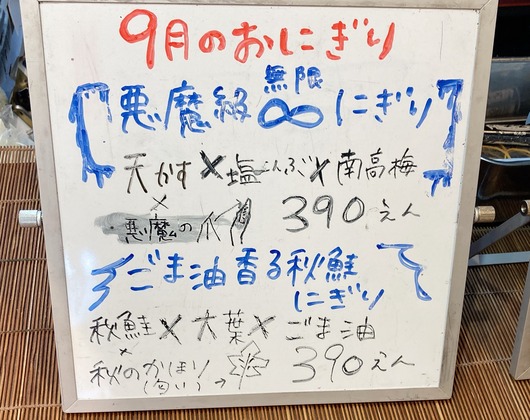 9月のおにぎり
無限
悪魔級∞にぎり
天かす×塩こんぶ×南高梅
×
悪魔の爪 390えん
ごま油香る秋鮭
にぎり
秋鮭×大葉×ごま油
×
秋のかほり→ 390えん
(匂い)